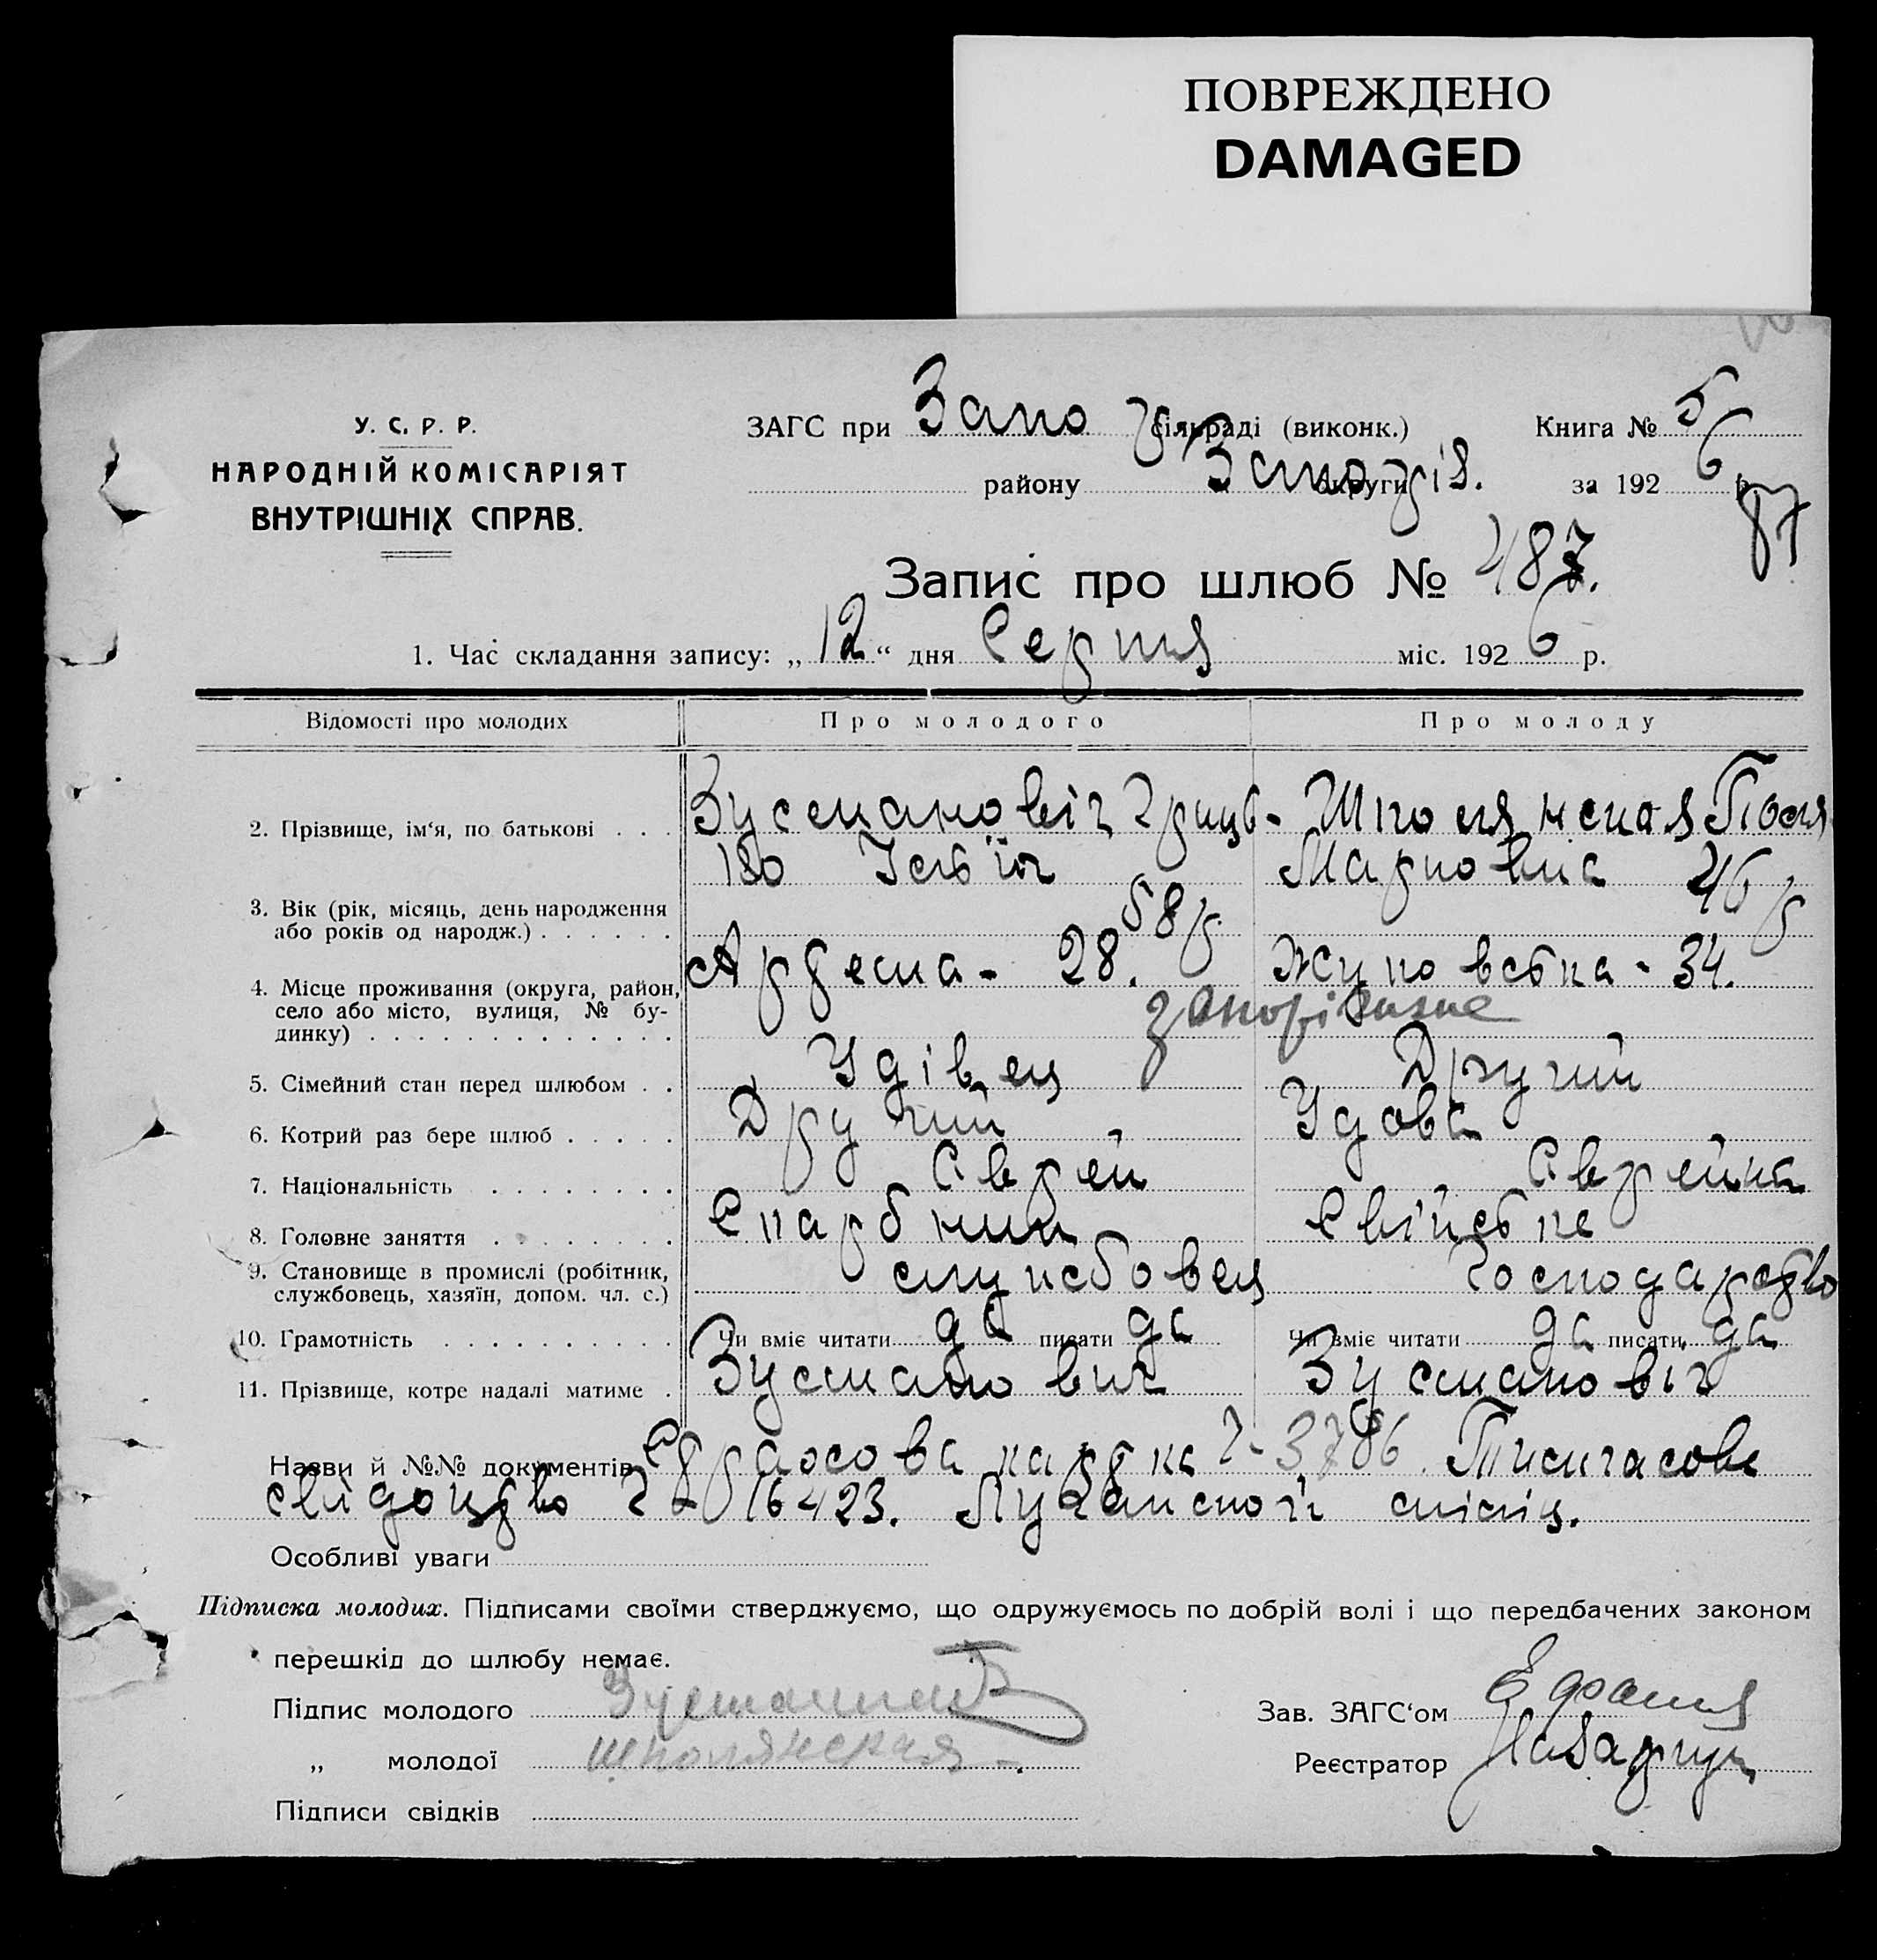 ПОВРЕЖДЕНО
DAMAGED
У. С. Р. Р.
НАРОДНІЙ КОМІСАРІЯТ
ВНУТРІШНІХ СПРАВ.
ЗАГС при Запо сільраді (виконк.) Книга № 5
району округи за 192 6 р.
87
Запис про шлюб № 487.
1. Час складання запису: „ 12 “ дня Серпня міс. 192 6 р.
Відомості про молодих Про молодого Про молоду
2. Прізвище, ім‘я, по батькові Зусманович Шполянская
Марковна 46 р
3. Вік (рік, місяць, день народження або років од народж.) 58 р.
4. Місце проживання (округа, район, село або місто, вулиця, № будинку) 28. Жуковська - 34.
Запоріжжє
5. Сімейний стан перед шлюбом Удівец Другий
6. Котрий раз бере шлюб Другий Удова
7. Національність Єврей Єврейка
8. Головне заняття Свійське
9. Становище в промислі (робітник, службовець, хазяїн, допом. чл. с.) службовец господарство
10. Грамотність Чи вміє читати да писати да Чи вміє читати да писати да
11. Прізвище, котре надалі матиме Зусманович Зусмановіч
Назви й №№ документів картка 3786. Тимчасове
свидоцтво 16423. Луганской міліц.
Особливі уваги
Підписка молодих. Підписами своїми стверджуємо, що одружуємось по добрій волі і що передбачених законом
перешкід до шлюбу немає.
Підпис молодого Зав. ЗАГС‘ом
„ молодої Шполянская Реєстратор
Підписи свідків